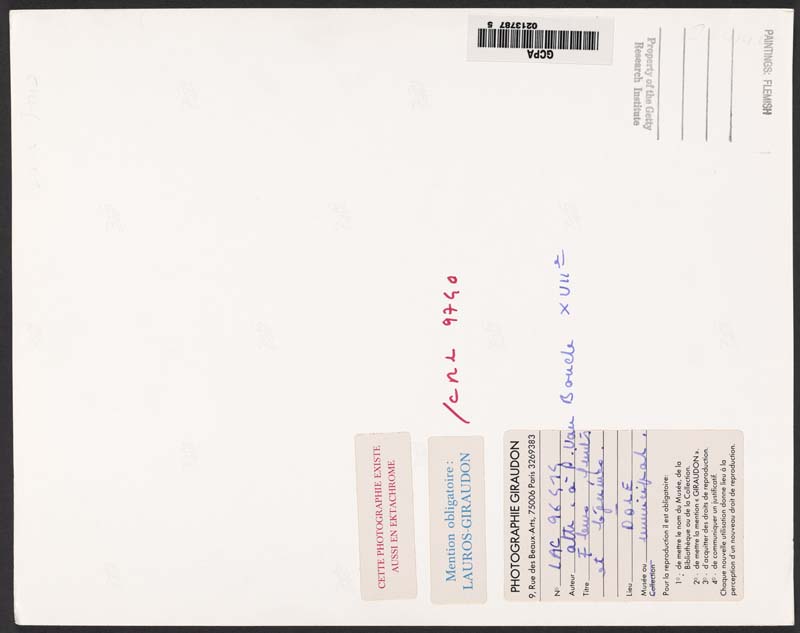 GCPA
0213787 5
Property of the Getty
Research Institute
PAINTINGS: FLEMISH
CETTE PHOTOGRAPHIE EXISTE
AUSSI EN EKTACHROME
Mention obligatoire :
LAUROS-GIRAUDON
PHOTOGRAPHIE GIRAUDON
9, Rue des Beaux-Arts, 75006 Paris 3269383
N° LAC
Auteur attr. à P. Van Boucle XVIIe
Titre Fleurs fruits
et légumes.
Lieu DOLE
Musée ou municipal.
Collection
Pour la reproduction il est obligatoire:
1° : de mettre le nom du Musée, de la
Bibliothèque ou de la Collection.
2° : de mettre la mention « GIRAUDON ».
3° : d'acquitter des droits de reproduction.
4° : de communiquer un justificatif.
Chaque nouvelle utilisation donne lieu à la
perception d'un nouveau droit de reproduction.